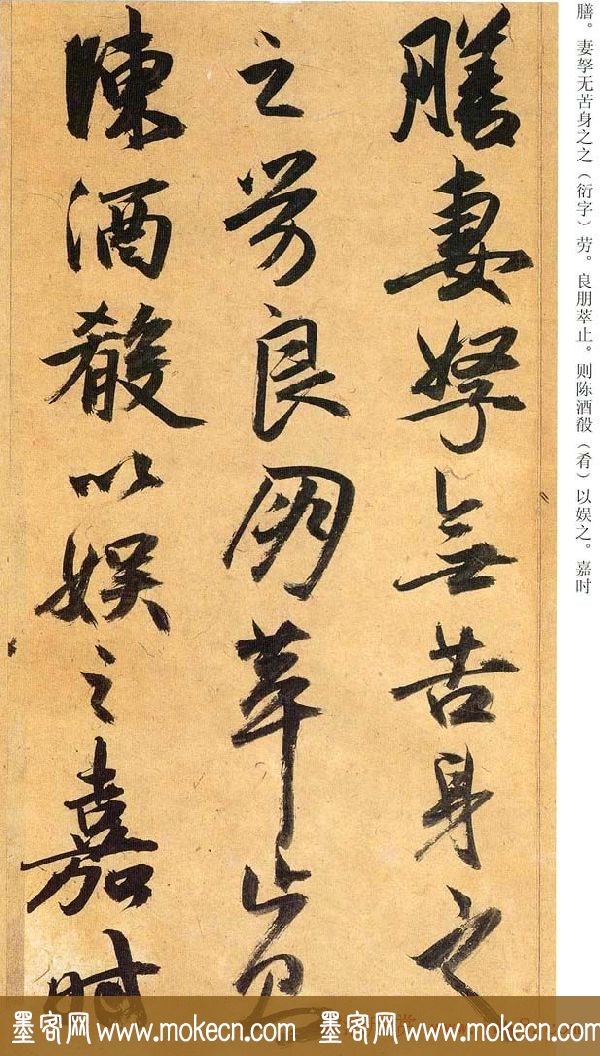 膳妻孥無苦身之
之劳良朋萃止则
陳酒殽以娱之嘉時
膳。妻孥无苦身之之（衍字）劳。良朋萃止。则陈酒殽（肴）以娱之。嘉时
墨客网 www.mokecn.com 墨客网 www.mokecn.com